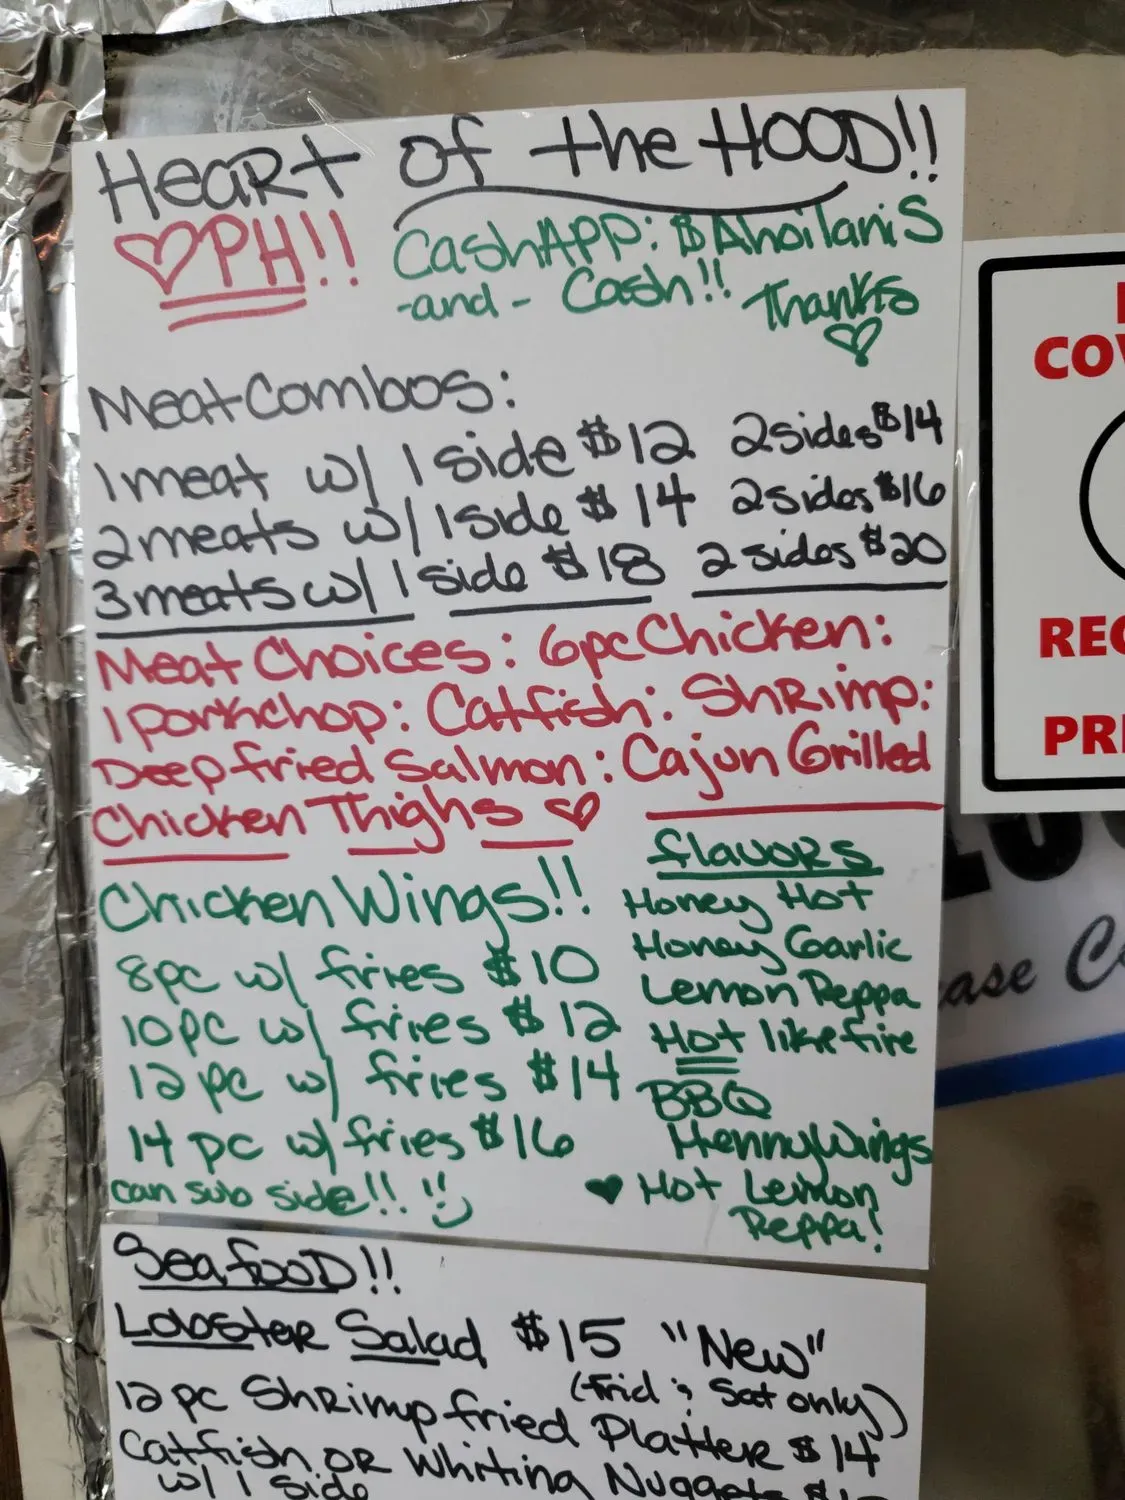 Heart of the HOOD!!
♡PH!!
CashAPP: $AhoilaniS
-and- Cash!! Thanks ♡
Meat Combos:
1 meat w/ 1 side $12 2 sides $14
2 meats w/ 1 side $14 2 sides $16
3 meats w/ 1 side $18 2 sides $20
Meat Choices: 6pc Chicken:
1 porkchop: Catfish: Shrimp:
Deep fried Salmon: Cajun Grilled
Chicken Thighs ♡
Chicken Wings!!
8pc w/ fries $10
10pc w/ fries $12
12 pc w/ fries $14
14 pc w/ fries $16
can sub side!!
flavors
Honey Hot
Honey Garlic
Lemon Peppa
Hot like fire
BBQ
Henny Wings
♥ Hot Lemon
Peppa!
SeafooD!!
Lobster Salad $15 "New"
(frid & Sat only)
12 pc Shrimp fried Platter $14
Catfish OR Whiting Nuggets
w/ 1 side
COV
REC
PRI
ease C